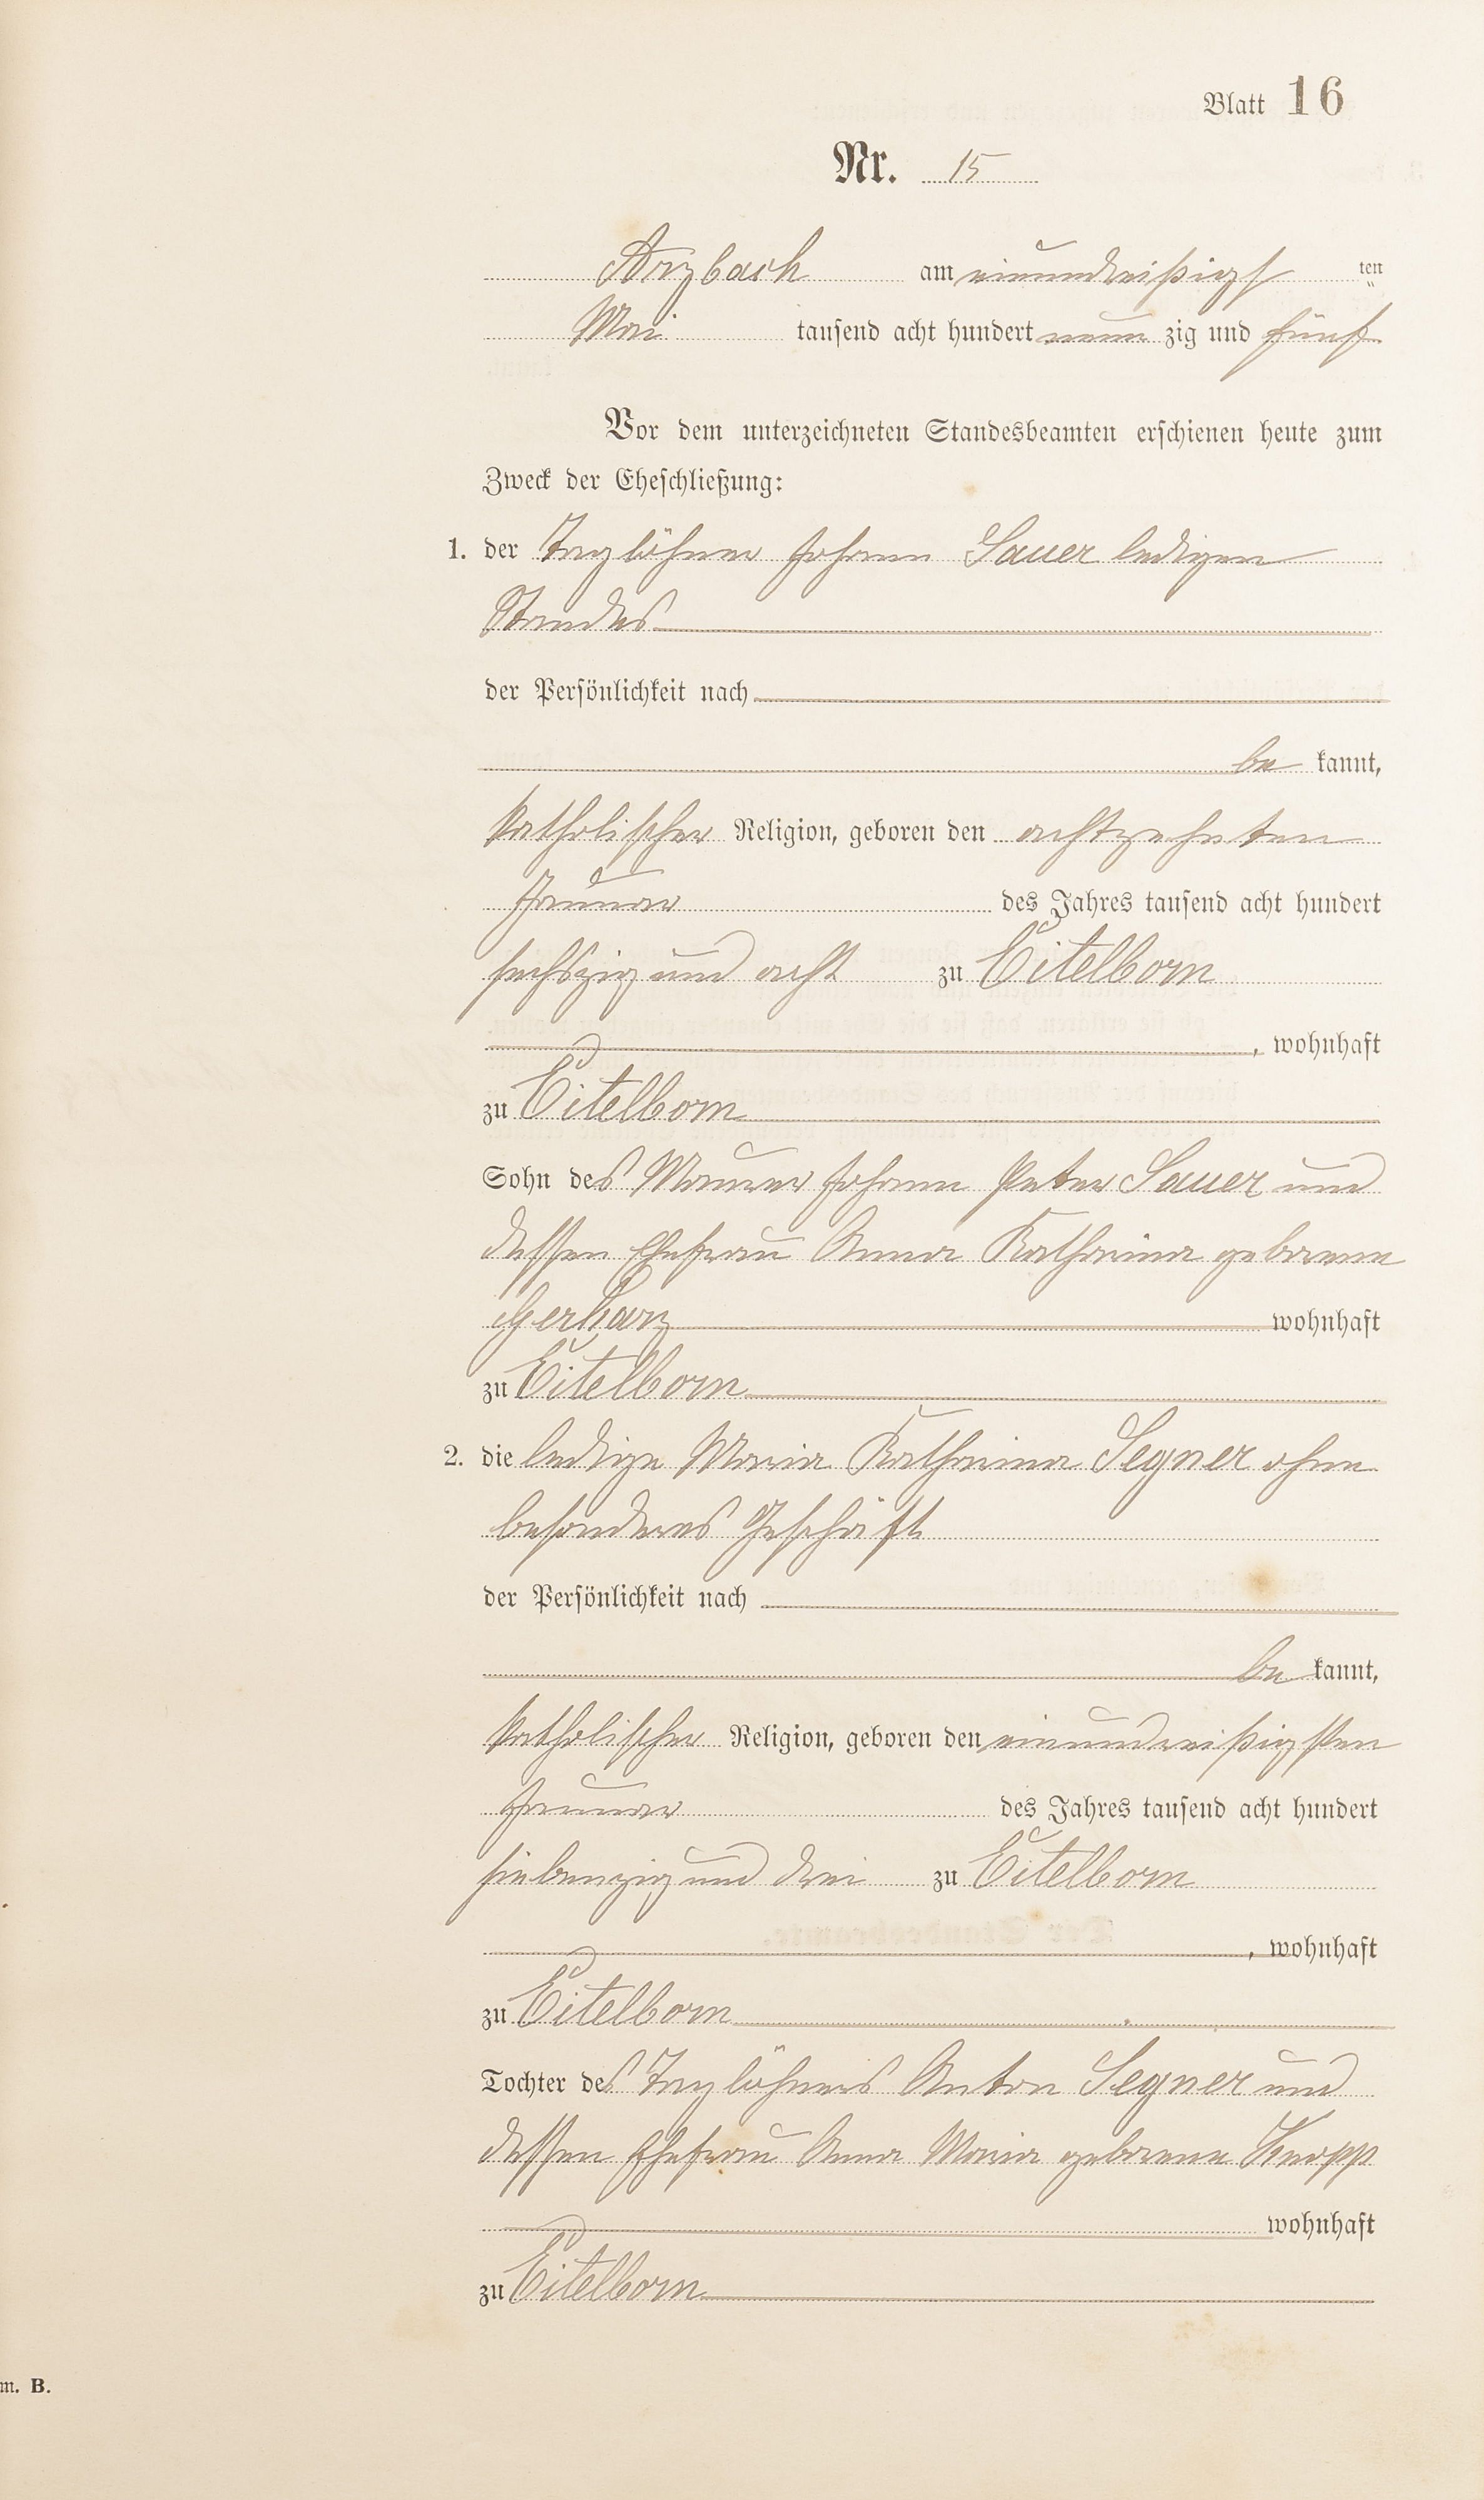 Blatt 16
Nr. 15
Arzbach am einunddreißigst ten
Mai tausend acht hundert neun zig und fünf
Vor dem unterzeichneten Standesbeamten erschienen heute zum
Zweck der Eheschließung:
1. der Taglöhner Johann Sauer ledigen
Standes
der Persönlichkeit nach
be kannt,
katholischer Religion, geboren den achtzehnten
Januar des Jahres tausend acht hundert
sechszig und acht zu Eitelborn
, wohnhaft
zu Eitelborn
Sohn des Maurer Johann Peter Sauer und
dessen Ehefrau Anna Katharina geborene
Gerharz wohnhaft
zu Eitelborn
2. die ledige Maria Katharina Segner ohne
besonderes Geschäft
der Persönlichkeit nach
be kannt,
katholischer Religion, geboren den einundreißigsten
Januar des Jahres tausend acht hundert
siebenzig und drei zu Eitelborn
, wohnhaft
zu Eitelborn
Tochter des Taglöhners Anton Segner und
dessen Ehefrau Anna Maria geborene Knopp
wohnhaft
zu Eitelborn
m. B.